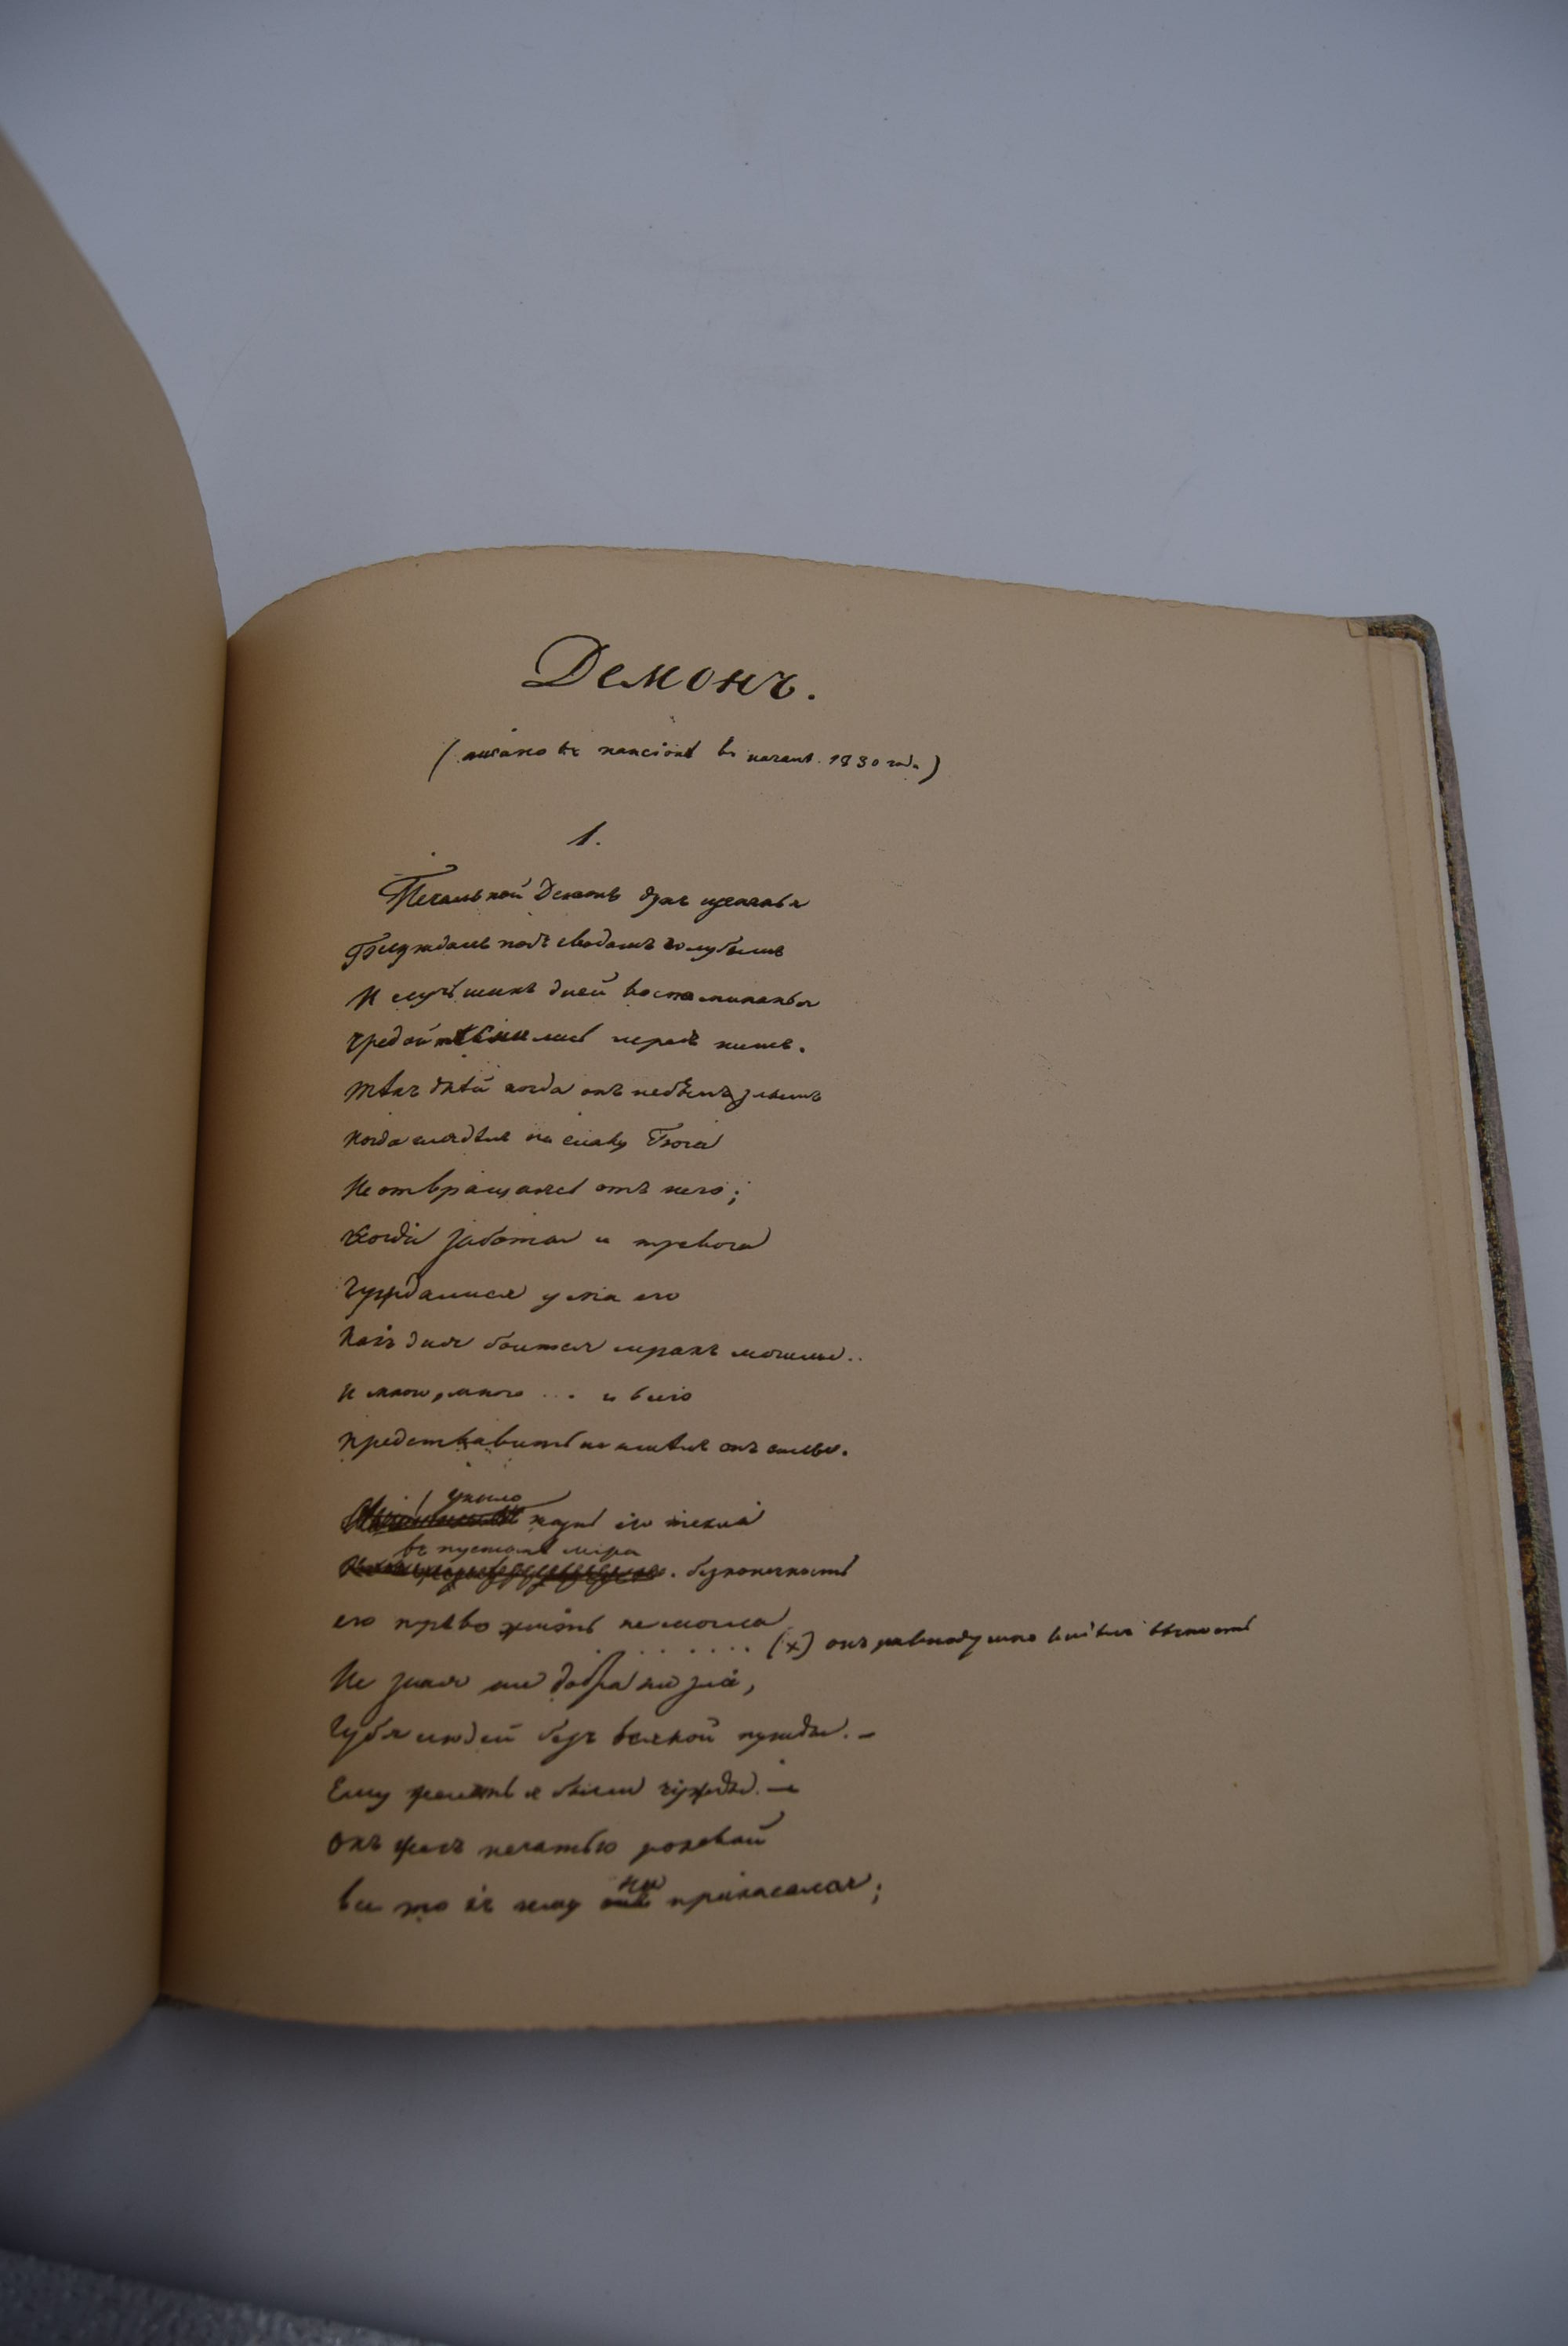 Демонъ.
(писано въ пансіонѣ въ началѣ 1830 года)
1.
Печальной Демонъ духъ изгнанья
Блуждалъ подъ сводомъ голубымъ
И лучшихъ дней воспоминанья
Чредой тѣснились передъ нимъ.
Тѣхъ дней когда онъ не былъ злымъ
Когда глядѣлъ на славу Бога
Не отвращаясь отъ него;
Когда забота и тревога
Чуждалися ума его
Какъ дня боится мракъ могилы..
И много, много ... и всего
Представить не имѣлъ онъ силы.
уныло
жизнь его текла
въ пустынѣ міра
. безконечность
его тревожить не могла
. . . . . . . (x) онъ равнодушно видѣлъ вѣчность
Не зная ни добра ни зла,
Губя людей безъ всякой нужды. –
Ему желанья были чужды. –
Онъ жегъ печатью роковой
все то къ чему ни прикасался;